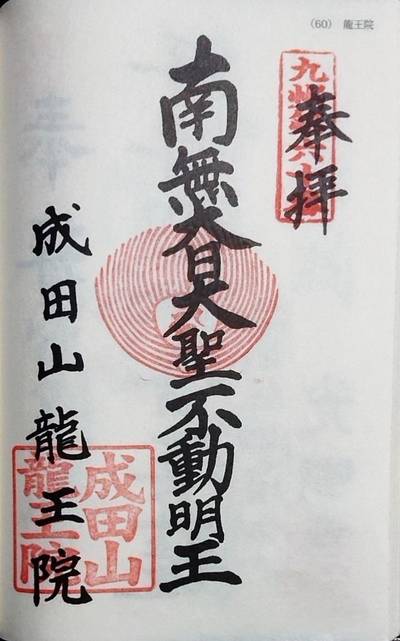 (60) 龍王院
奉拝
南無大日大聖不動明王
成田山龍王院
成田山
龍王院